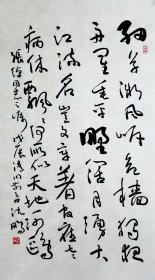 細草微風岸危檣獨夜
舟星垂平野闊月湧大
江流名豈文章著官應老
病休飄飄何所似天地一沙鷗
沈鵬